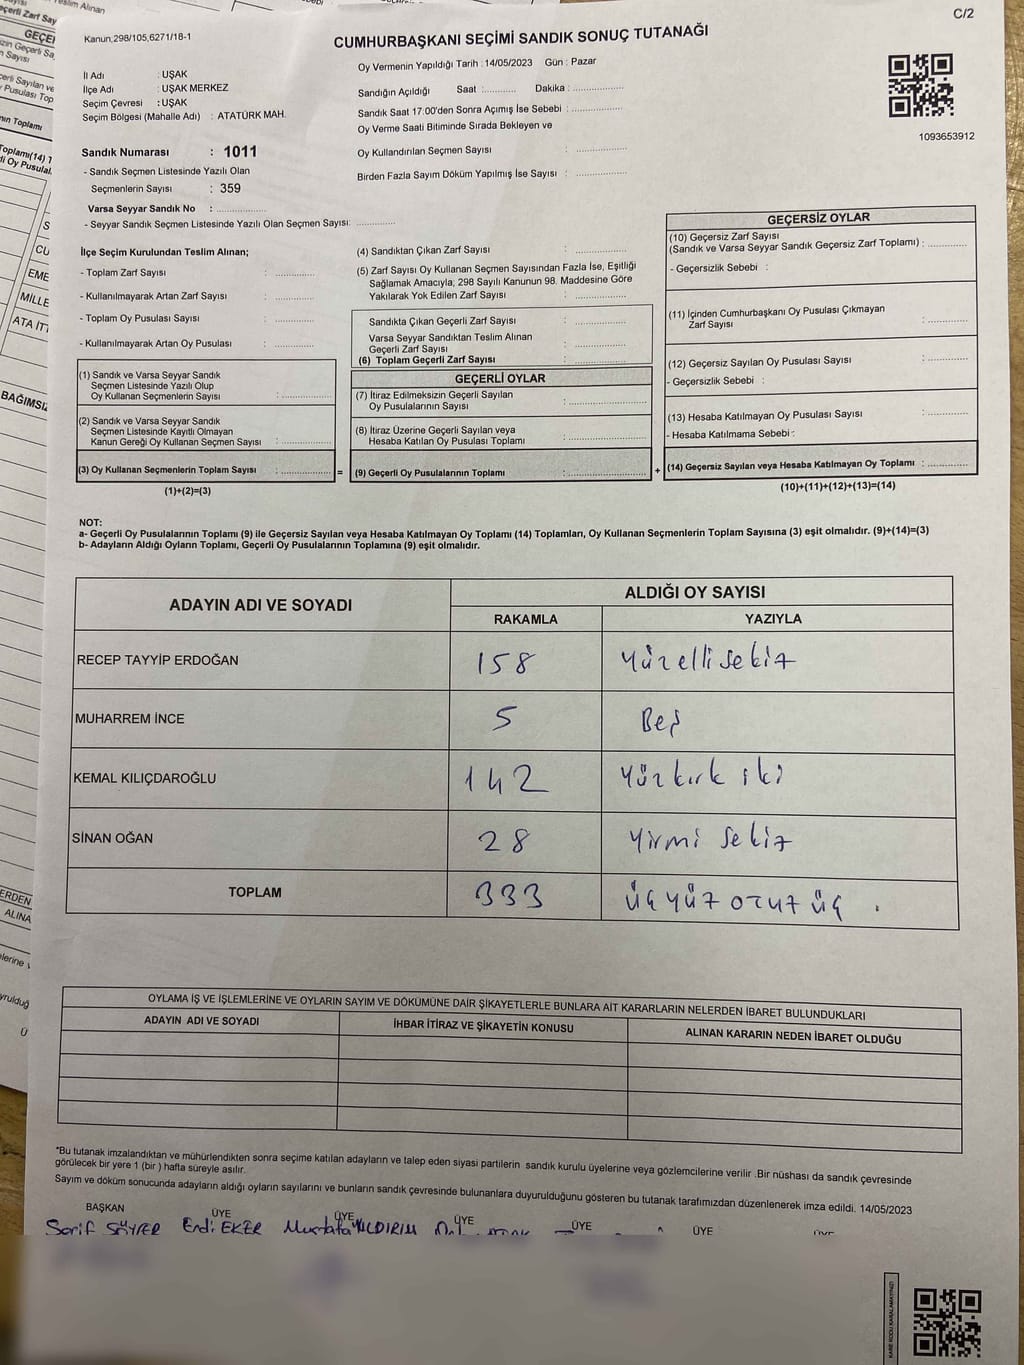 C/2
Kanun;298/105,6271/18-1
CUMHURBAŞKANI SEÇİMİ SANDIK SONUÇ TUTANAĞI
İl Adı : UŞAK
İlçe Adı : UŞAK MERKEZ
Seçim Çevresi : UŞAK
Seçim Bölgesi (Mahalle Adı) : ATATÜRK MAH.
Sandık Numarası : 1011
- Sandık Seçmen Listesinde Yazılı Olan
Seçmenlerin Sayısı : 359
Varsa Seyyar Sandık No :
- Seyyar Sandık Seçmen Listesinde Yazılı Olan Seçmen Sayısı:
Oy Vermenin Yapıldığı Tarih : 14/05/2023 Gün : Pazar
Sandığın Açıldığı Saat : Dakika :
Sandık Saat 17:00'den Sonra Açımış İse Sebebi :
Oy Verme Saati Bitiminde Sırada Bekleyen ve
Oy Kullandırılan Seçmen Sayısı :
Birden Fazla Sayım Döküm Yapılmış İse Sayısı :
1093653912
İlçe Seçim Kurulundan Teslim Alınan;
- Toplam Zarf Sayısı :
- Kullanılmayarak Artan Zarf Sayısı :
- Toplam Oy Pusulası Sayısı :
- Kullanılmayarak Artan Oy Pusulası :
(1) Sandık ve Varsa Seyyar Sandık
Seçmen Listesinde Yazılı Olup
Oy Kullanan Seçmenlerin Sayısı :
(2) Sandık ve Varsa Seyyar Sandık
Seçmen Listesinde Kayıtlı Olmayan
Kanun Gereği Oy Kullanan Seçmen Sayısı :
(3) Oy Kullanan Seçmenlerin Toplam Sayısı :
(1)+(2)=(3)
(4) Sandıktan Çıkan Zarf Sayısı :
(5) Zarf Sayısı Oy Kullanan Seçmen Sayısından Fazla İse, Eşitliği
Sağlamak Amacıyla, 298 Sayılı Kanunun 98. Maddesine Göre
Yakılarak Yok Edilen Zarf Sayısı :
Sandıkta Çıkan Geçerli Zarf Sayısı :
Varsa Seyyar Sandıktan Teslim Alınan
Geçerli Zarf Sayısı :
(6) Toplam Geçerli Zarf Sayısı :
GEÇERLİ OYLAR
(7) İtiraz Edilmeksizin Geçerli Sayılan
Oy Pusulalarının Sayısı :
(8) İtiraz Üzerine Geçerli Sayılan veya
Hesaba Katılan Oy Pusulası Toplamı :
= (9) Geçerli Oy Pusulalarının Toplamı :
GEÇERSİZ OYLAR
(10) Geçersiz Zarf Sayısı
(Sandık ve Varsa Seyyar Sandık Geçersiz Zarf Toplamı) :
- Geçersizlik Sebebi :
(11) İçinden Cumhurbaşkanı Oy Pusulası Çıkmayan
Zarf Sayısı :
(12) Geçersiz Sayılan Oy Pusulası Sayısı :
- Geçersizlik Sebebi :
(13) Hesaba Katılmayan Oy Pusulası Sayısı :
- Hesaba Katılmama Sebebi :
+ (14) Geçersiz Sayılan veya Hesaba Katılmayan Oy Toplamı :
(10)+(11)+(12)+(13)=(14)
NOT:
a- Geçerli Oy Pusulalarının Toplamı (9) ile Geçersiz Sayılan veya Hesaba Katılmayan Oy Toplamı (14) Toplamları, Oy Kullanan Seçmenlerin Toplam Sayısına (3) eşit olmalıdır. (9)+(14)=(3)
b- Adayların Aldığı Oyların Toplamı, Geçerli Oy Pusulalarının Toplamına (9) eşit olmalıdır.
ADAYIN ADI VE SOYADI ALDIĞI OY SAYISI
RAKAMLA YAZIYLA
RECEP TAYYİP ERDOĞAN 158 Yüzelli sekiz
MUHARREM İNCE 5 Beş
KEMAL KILIÇDAROĞLU 142 Yüzkırk iki
SİNAN OĞAN 28 Yirmi Sekiz
TOPLAM 333 üçyüz otuz üç
OYLAMA İŞ VE İŞLEMLERİNE VE OYLARIN SAYIM VE DÖKÜMÜNE DAİR ŞİKAYETLERLE BUNLARA AİT KARARLARIN NELERDEN İBARET BULUNDUKLARI
ADAYIN ADI VE SOYADI İHBAR İTİRAZ VE ŞİKAYETİN KONUSU ALINAN KARARIN NEDEN İBARET OLDUĞU
*Bu tutanak imzalandıktan ve mühürlendikten sonra seçime katılan adayların ve talep eden siyasi partilerin sandık kurulu üyelerine veya gözlemcilerine verilir .Bir nüshası da sandık çevresinde
görülecek bir yere 1 (bir ) hafta süreyle asılır.
Sayım ve döküm sonucunda adayların aldığı oyların sayılarını ve bunların sandık çevresinde bulunanlara duyurulduğunu gösteren bu tutanak tarafımızdan düzenlenerek imza edildi. 14/05/2023
BAŞKAN ÜYE ÜYE ÜYE ÜYE ÜYE ÜYE
Şerif SÖYLER Erdi EKER Mustafa YILDIRIM